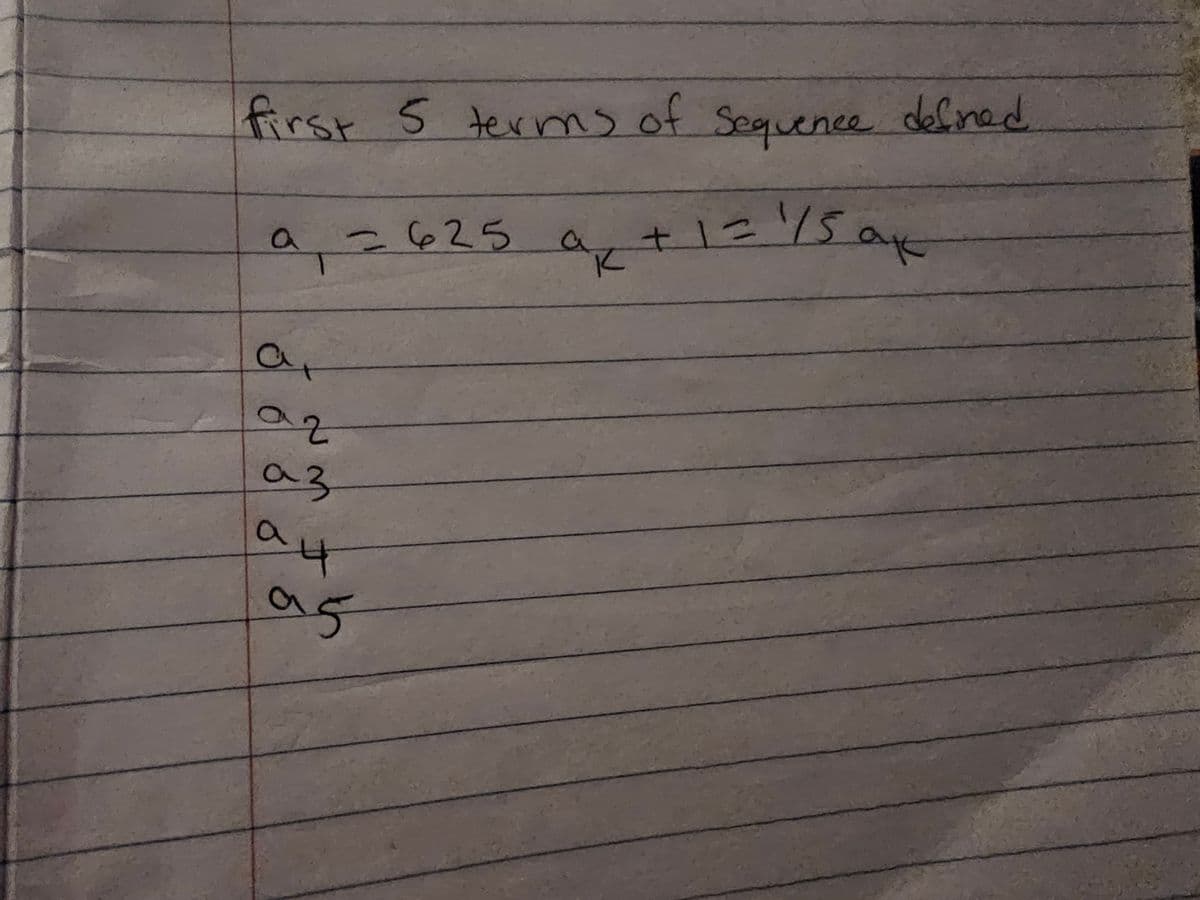 first 5 terms of sequence defined
a₁ = 625 aₖ + 1 = 1/5 aₖ
a₁
a₂
a₃
a₄
a₅